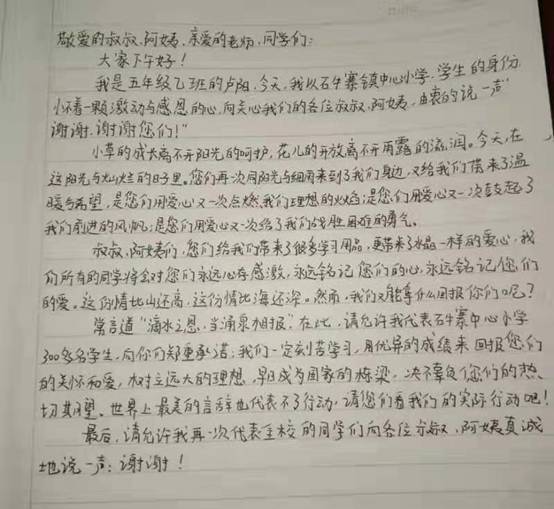 敬爱的叔叔、阿姨，亲爱的老师、同学们：
大家下午好！
我是五年级乙班的卢阳，今天，我以石牛寨镇中心小学学生的身份，
怀着一颗激动与感恩的心，向关心我们的各位叔叔、阿姨，由衷的说一声“
谢谢，谢谢您们！”
小草的成长离不开阳光的呵护，花儿的开放离不开雨露的滋润。今天，在
这阳光与灿烂的日子里。您们再一次同阳光与细雨来到了我们身边，又给我们带来了温
暖与希望，是您们用爱心又一次点燃我们理想的火焰；是您们用爱心又一次鼓起了
我们前进的风帆；是您们用爱心又一次给了我们战胜困难的勇气。
叔叔、阿姨们，您们给我们带来了很多学习用品，更带来了水晶一样的爱心，我
们所有的同学将会对您们永远心存感激，永远铭记您们的心，永远铭记您们
的爱。这份情比山还高，这份情比海还深。然而，我们又能拿什么回报你们呢？
常言道“滴水之恩，当涌泉相报”，在此，请允许我代表石牛寨中心小学
300多名学生，向你们郑重承诺：我们一定刻苦学习，用优异的成绩来回报您们
的关怀和爱，树立远大的理想，早日成为国家的栋梁，决不辜负您们的热
切期望。世界上最美的言辞也代表不了行动，请您们看我们的实际行动吧！
最后，请允许我再一次代表全校的同学们向各位叔叔、阿姨真诚
地说一声：谢谢！